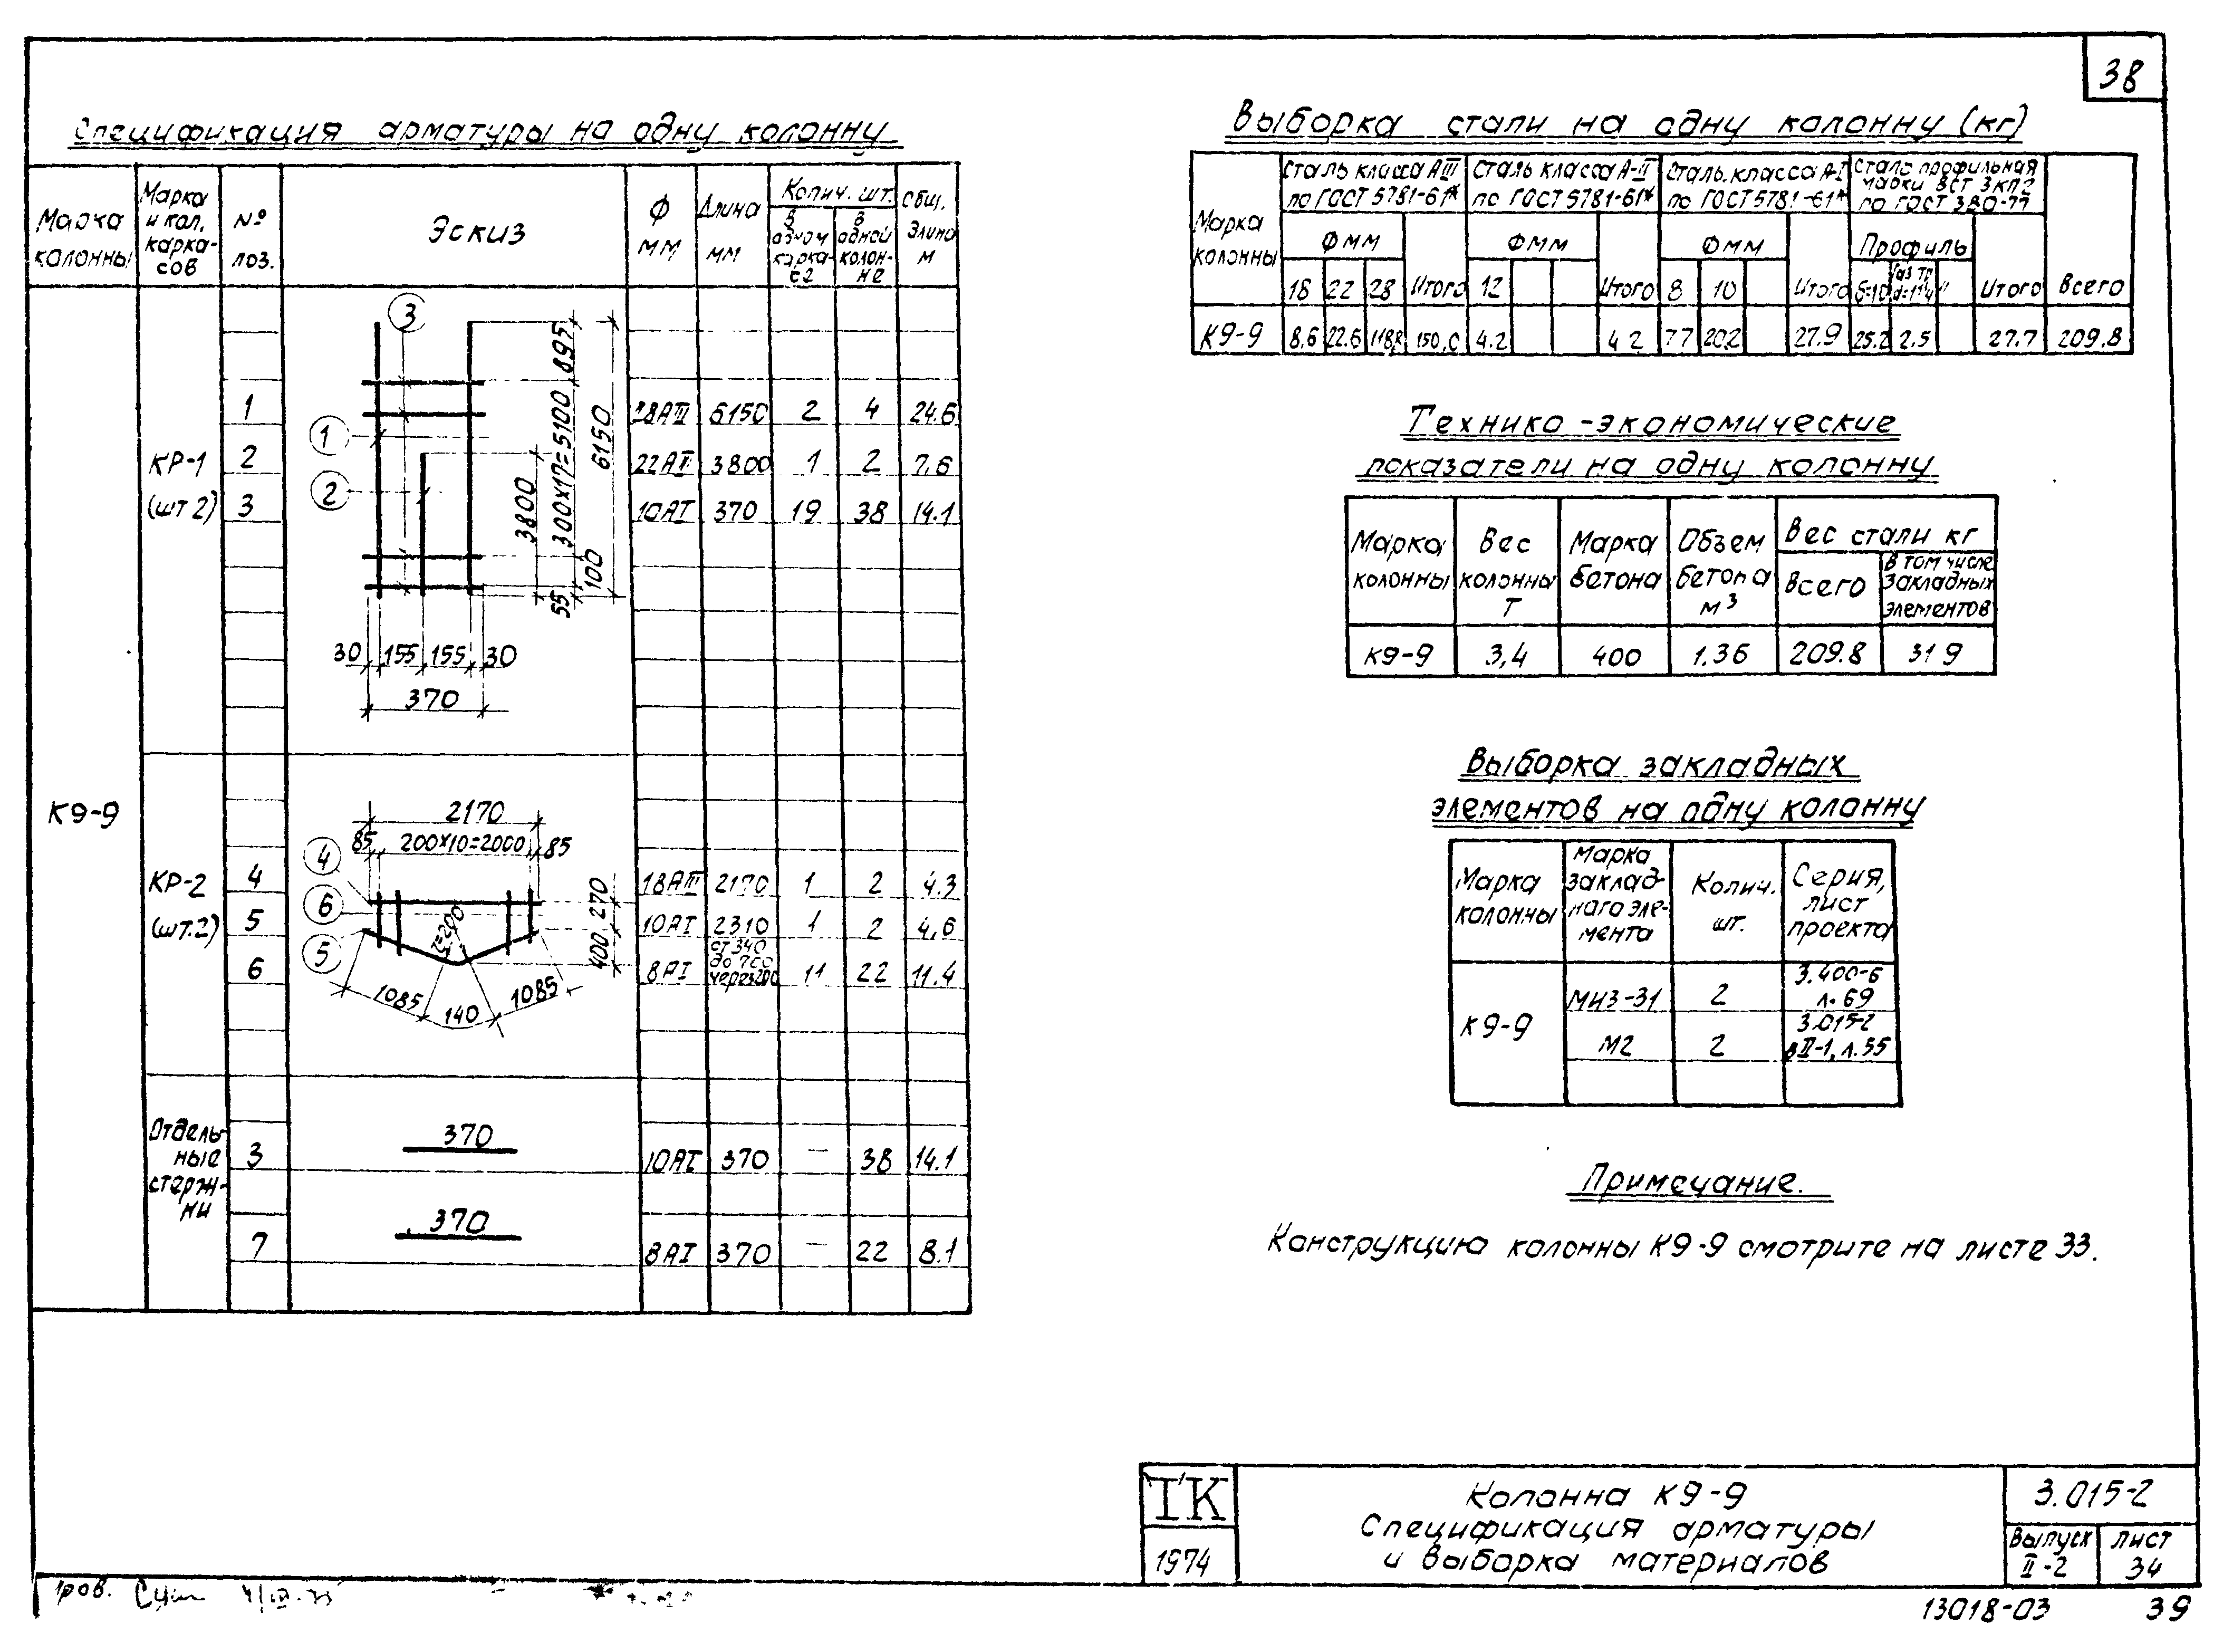 38
Спецификация арматуры на одну колонну
Марка колонны
Марка и кол. каркасов
№ поз.
Эскиз
Ф мм
Длина мм
Колич. шт.
В одном каркасе
В одной колонне
Общ. длина м
К9-9
КР-1 (шт 2)
1 28АIII 6150 2 4 24.6
2 22АIII 3800 1 2 7,6
3 10АI 370 19 38 14.1
3
1
2
895
300х17=5100
6150
3800
100
55
30 155 155 30
370
КР-2 (шт.2)
4 18АIII 2170 1 2 4.3
5 10АI 2310 1 2 4,6
6 8АI от 340 11 22 11.4
2170
85 200х10=2000 85
4
6
5
270
400
1085 140 1085
Отдельные стержни
3 370 10АI 370 — 38 14.1
7 370 8АI 370 — 22 8.1
Выборка стали на одну колонну (кг)
Марка колонны
Сталь класса АIII по ГОСТ 5781-61*
Сталь класса А-II по ГОСТ 5781-61*
Сталь класса А-I по ГОСТ 5781-61*
Сталь профильная марки ВСТ 3кп2 по ГОСТ 380-71
Фмм
Фмм
Фмм
Профиль
18 22 28 Итого 12 Итого 8 10 Итого δ=10 Итого Всего
К9-9 8,6 22.6 118,8 150,0 4.2 4 2 77 20.2 27.9 25.2 2.5 27.7 209.8
Технико-экономические
показатели на одну колонну
Марка колонны
Вес колонны Т
Марка бетона
Объем бетона м³
Вес стали кг
Всего
В том числе закладных элементов
К9-9 3,4 400 1.36 209.8 31 9
Выборка закладных
элементов на одну колонну
Марка колонны
Марка закладного элемента
Колич. шт.
Серия, лист проекта
К9-9
МИ3-31 2 3.400-6 л. 69
М2 2 3.015-2 в II-1, л.55
Примечание.
Конструкцию колонны К9-9 смотрите на листе 33.
ТК
1974
Колонна К9-9
Спецификация арматуры
и выборка материалов
3.015-2
Выпуск II-2
Лист 34
13018-03 39